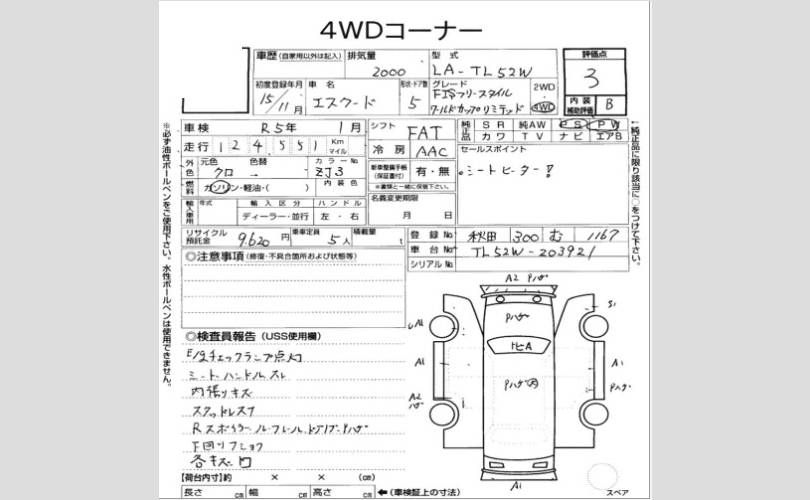 4WDコーナー
車歴 (自家用以外は記入) 排気量 2000 型式 LA-TL52W
評価点 3
初度登録年月 15年11月 車名 エスクード 形状・ドア数 5 グレード FISフリースタイル ワールドカップリミテッド 2WD 4WD
内装補助評価 B
車検 R5年 1月 シフト FAT 純正品 SR 純AW PS PW
カワ TV ナビ エアB
走行 124,551 Km マイル 冷房 AAC セールスポイント
シートヒーター!
外色 元色 クロ 色替 カラーNo ZJ3 新車整備手帳(保証書付) 有・無
燃料 ガソリン・軽油・( ) 内装色 ※書類と一緒に保管下さい。
輸入車用 年式 輸入区分 ハンドル 名義変更期限
ディーラー・並行 左・右 月 日
リサイクル預託金 9,620円 乗車定員 5人 積載量 t 登録No 秋田 300 む 1167
車台No TL52W-203921
シリアルNo
◎注意事項 (修復・不具合箇所および状態等)
※必ず油性ボールペンをご使用下さい。水性ボールペンは使用できません。
↑純正品に限り該当に○をつけて下さい。
◎検査員報告 (USS使用欄)
チェックランプ点灯
シート、ハンドルスレ
内張りキズ
スタッドレス
下回りフショク
各キズ凹
A2
Pハゲ
S1
A1
A1
A1
Pハゲ
A2
A1
【荷台内寸】 × × (㎝)
長さ ㎝ 幅 ㎝ 高さ ㎝ ←(車検証上の寸法)
スペア